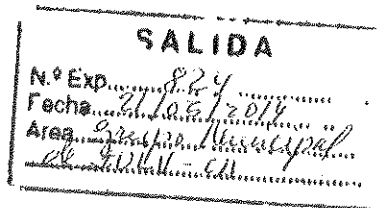 SALIDA
N.º Exp. 824
Fecha 21/05/2014
Area Grupo Municipal
de